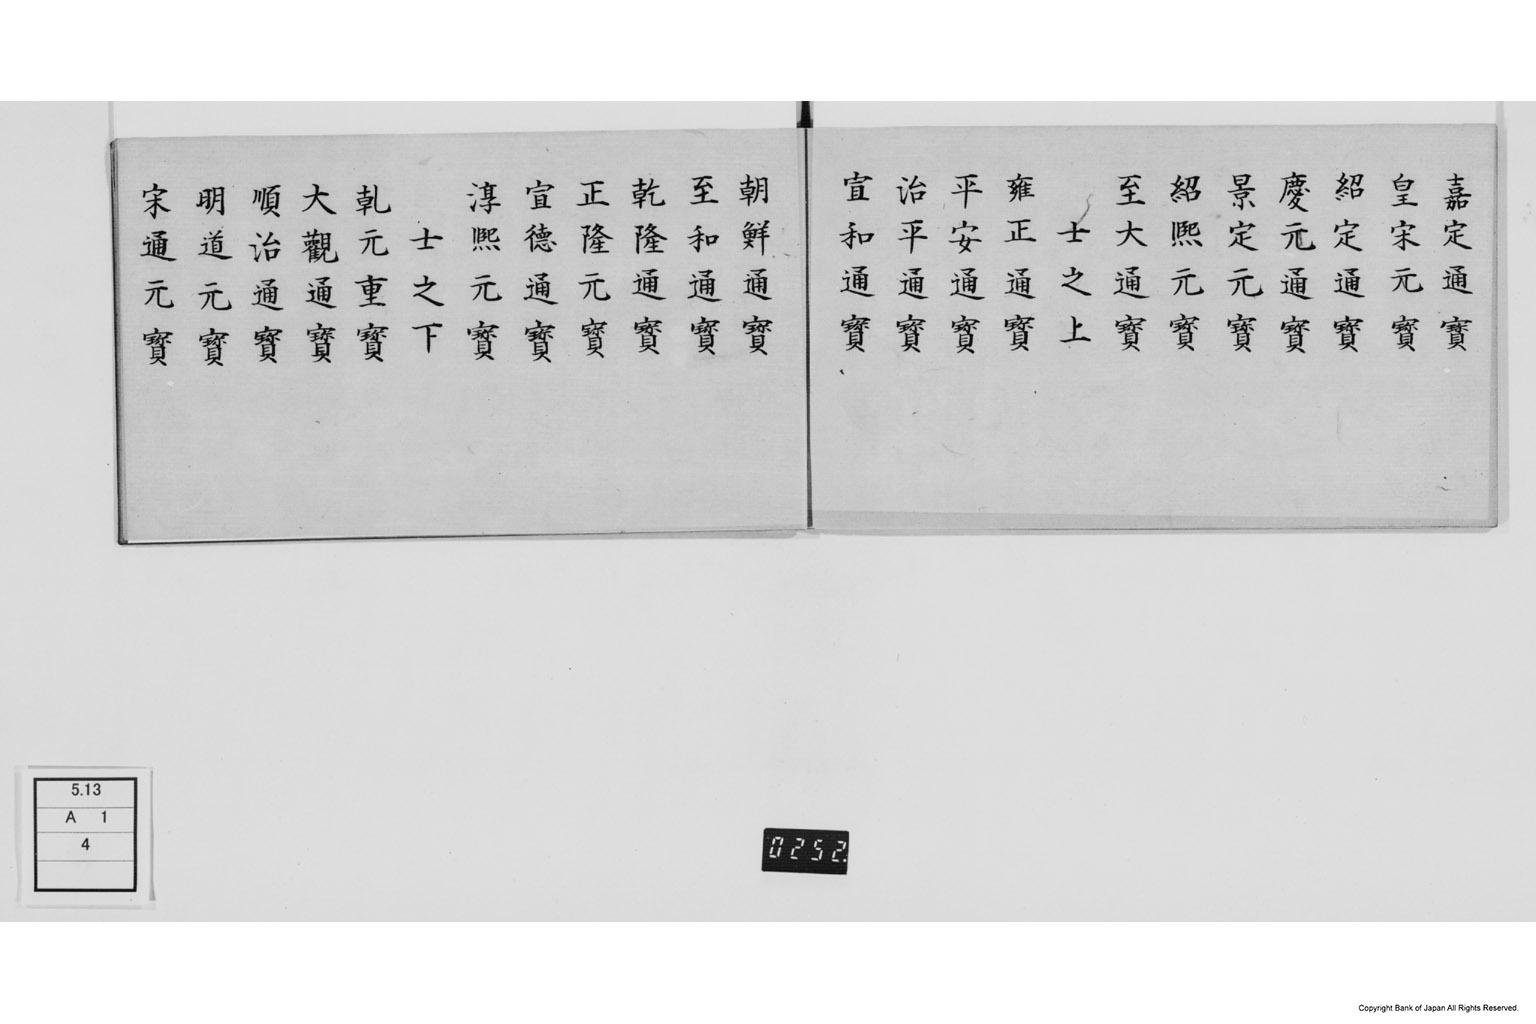 嘉定通寳
皇宋元寳
紹定通寳
慶元通寳
景定元寳
紹熈元寳
至大通寳
士之上
雍正通寳
平安通寳
治平通寳
宣和通寳
朝鮮通寳
至和通寳
乾隆通寳
正隆元寳
宣德通寳
淳熈元寳
士之下
乹元重寳
大觀通寳
順治通寳
明道元寳
宋通元寳
5.13
A 1
4
0252
Copyright Bank of Japan All Rights Reserved.